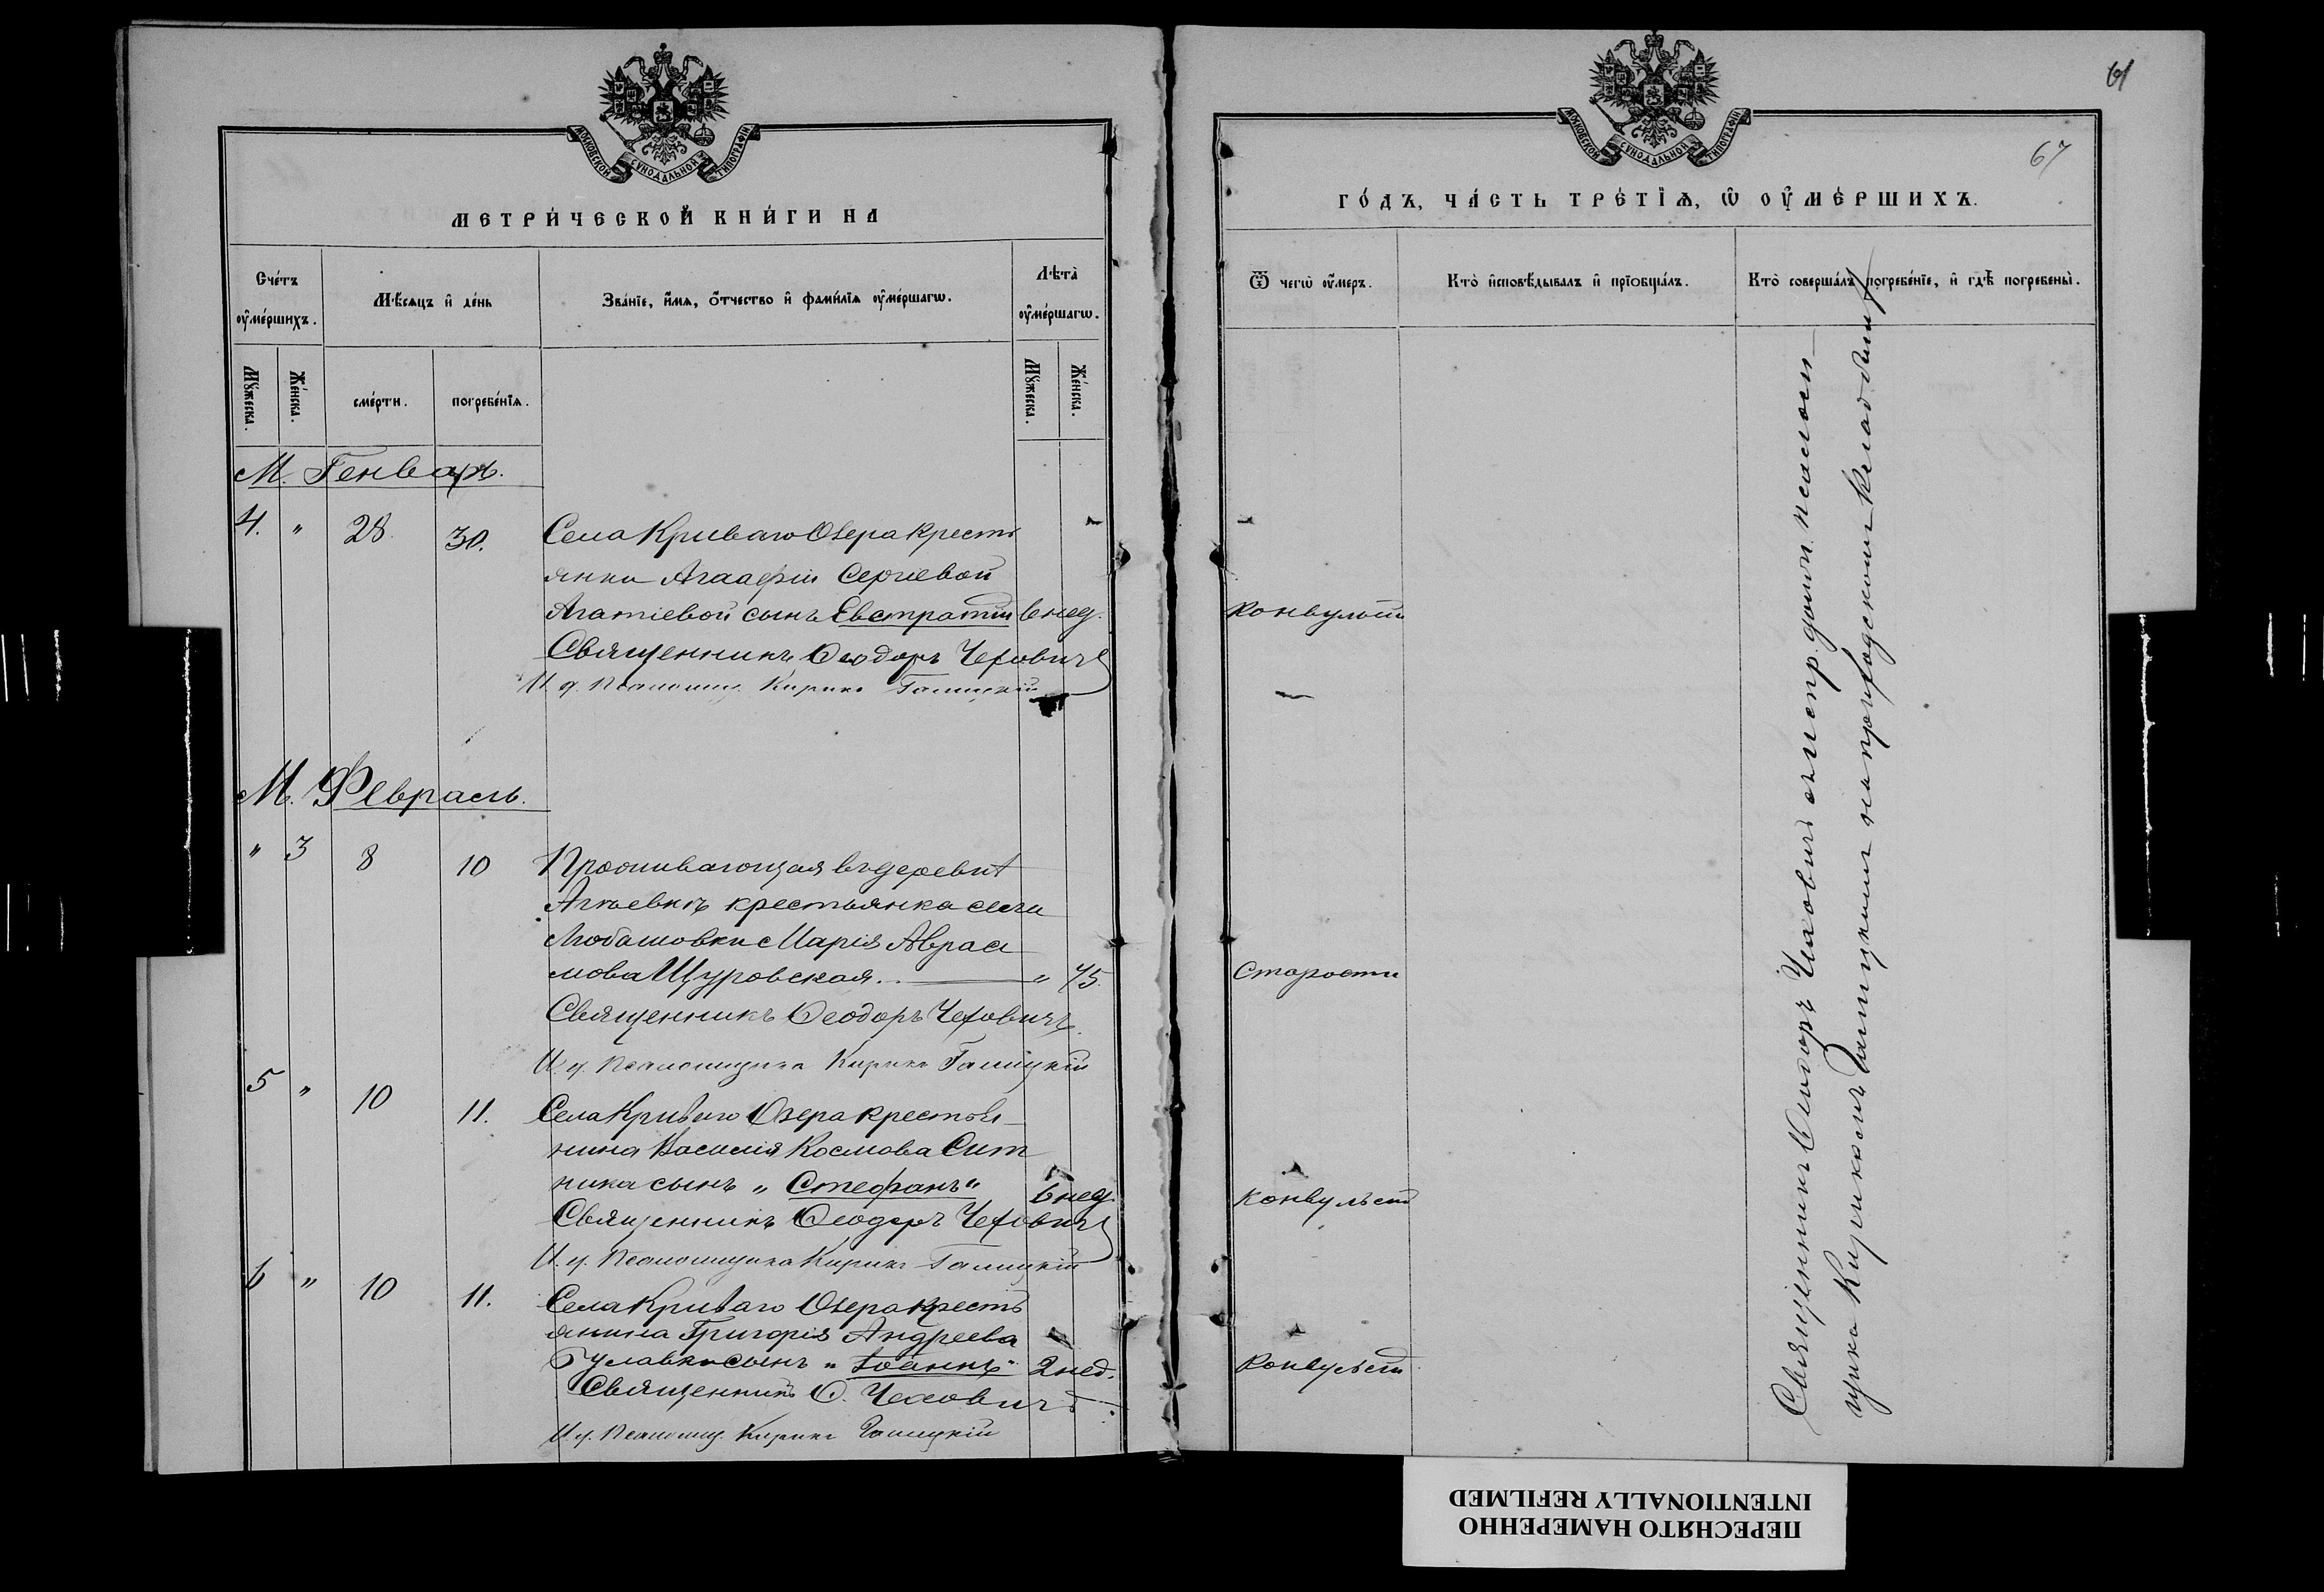 МОСКОВСКОЙ СУНОДАЛЬНОЙ ТИПОГРАФІИ
МЕТРИ́ЧЕСКОЙ КНИ́ГИ НА
Сче́тъ оу҆ме́ршихъ.
Мѣ́сяцъ и҆ де́нь
Зва́нїе, и҆́мѧ, ѻ҆́тчество и҆ фами́лїѧ оу҆ме́ршагѡ.
Лѣта̀ оу҆ме́ршагѡ.
Мꙋ́жеска.
Же́нска.
сме́рти.
погребе́нїѧ.
Мꙋ́жеска.
Же́нска.
М. Генварь.
4. " 28. 30. Села Криваго Озера кресть
янки Агафіи Сергіевой
Агатіевой сынъ Евстратій 6 нед.
Священникъ Ѳеодоръ Чеховичъ
И. д. Псаломщ. Кирикъ Галицкій
М. Февраль.
" 3 8 10 Проживающая въ деревнѣ
крестьянка села
Любашовки Марія Авраа
мова Щуровская. " 75.
Священникъ Ѳеодоръ Чеховичъ.
И д. Псаломщика Кирикъ Галицкій
5 " 10 11. Села Криваго Озера крестья
нина Василія Космова Сит
ника сынъ „Стефанъ“ 6 нед.
Священникъ Ѳеодоръ Чеховичъ
И. д. Псаломщика Кирикъ Галицкій
6 " 10 11. Села Криваго Озера кресть
янина Григорія Андреева
Булавки сынъ „Іоаннъ“ 2 нед.
Священникъ Ѳ. Чеховичъ.
И д. Псаломщ. Кирикъ Галицкій
61
67
МОСКОВСКОЙ СУНОДАЛЬНОЙ ТИПОГРАФІИ
ГО́ДЪ, ЧА́СТЬ ТРЕ́ТЇѦ, Ѡ҆ ОУ҆МЕ́РШИХЪ.
Ѿ чегѡ̀ оу҆́меръ.
Кто̀ и҆сповѣ́дывалъ и҆ прїобща́лъ.
Кто̀ соверша́лъ погребе́нїе, и҆ гдѣ̀ погребены̀.
конвульсіи
старости
конвульсій
конвульсій
Священникъ Ѳеодоръ Чеховичъ съ испр. долж. псалом
щика Кирикомъ Галицкимъ на приходскомъ кладбищѣ
ПЕРЕСНЯТО НАМЕРЕННО
INTENTIONALLY REFILMED